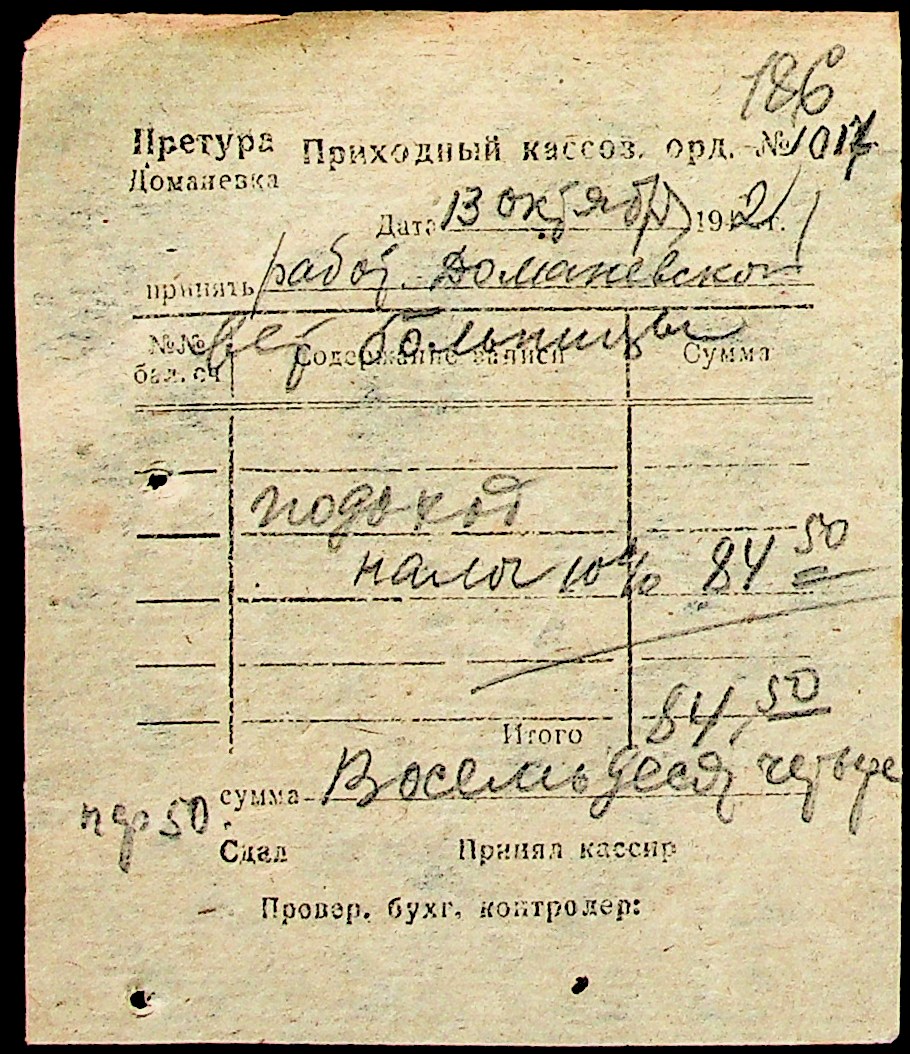 186
Претура Приходный кассов. орд. № 1017
Доманевка
Дата 13 октября 1942 г.
принять работ. Доманевской
вет больницы
№№ Содержание записи Сумма
бал. сч
подоход
налог 10% 84 50
Итого 84,50
сумма Восемьдесят четыре
кар 50
Сдал Принял кассир
Провер. бухг. контролер: